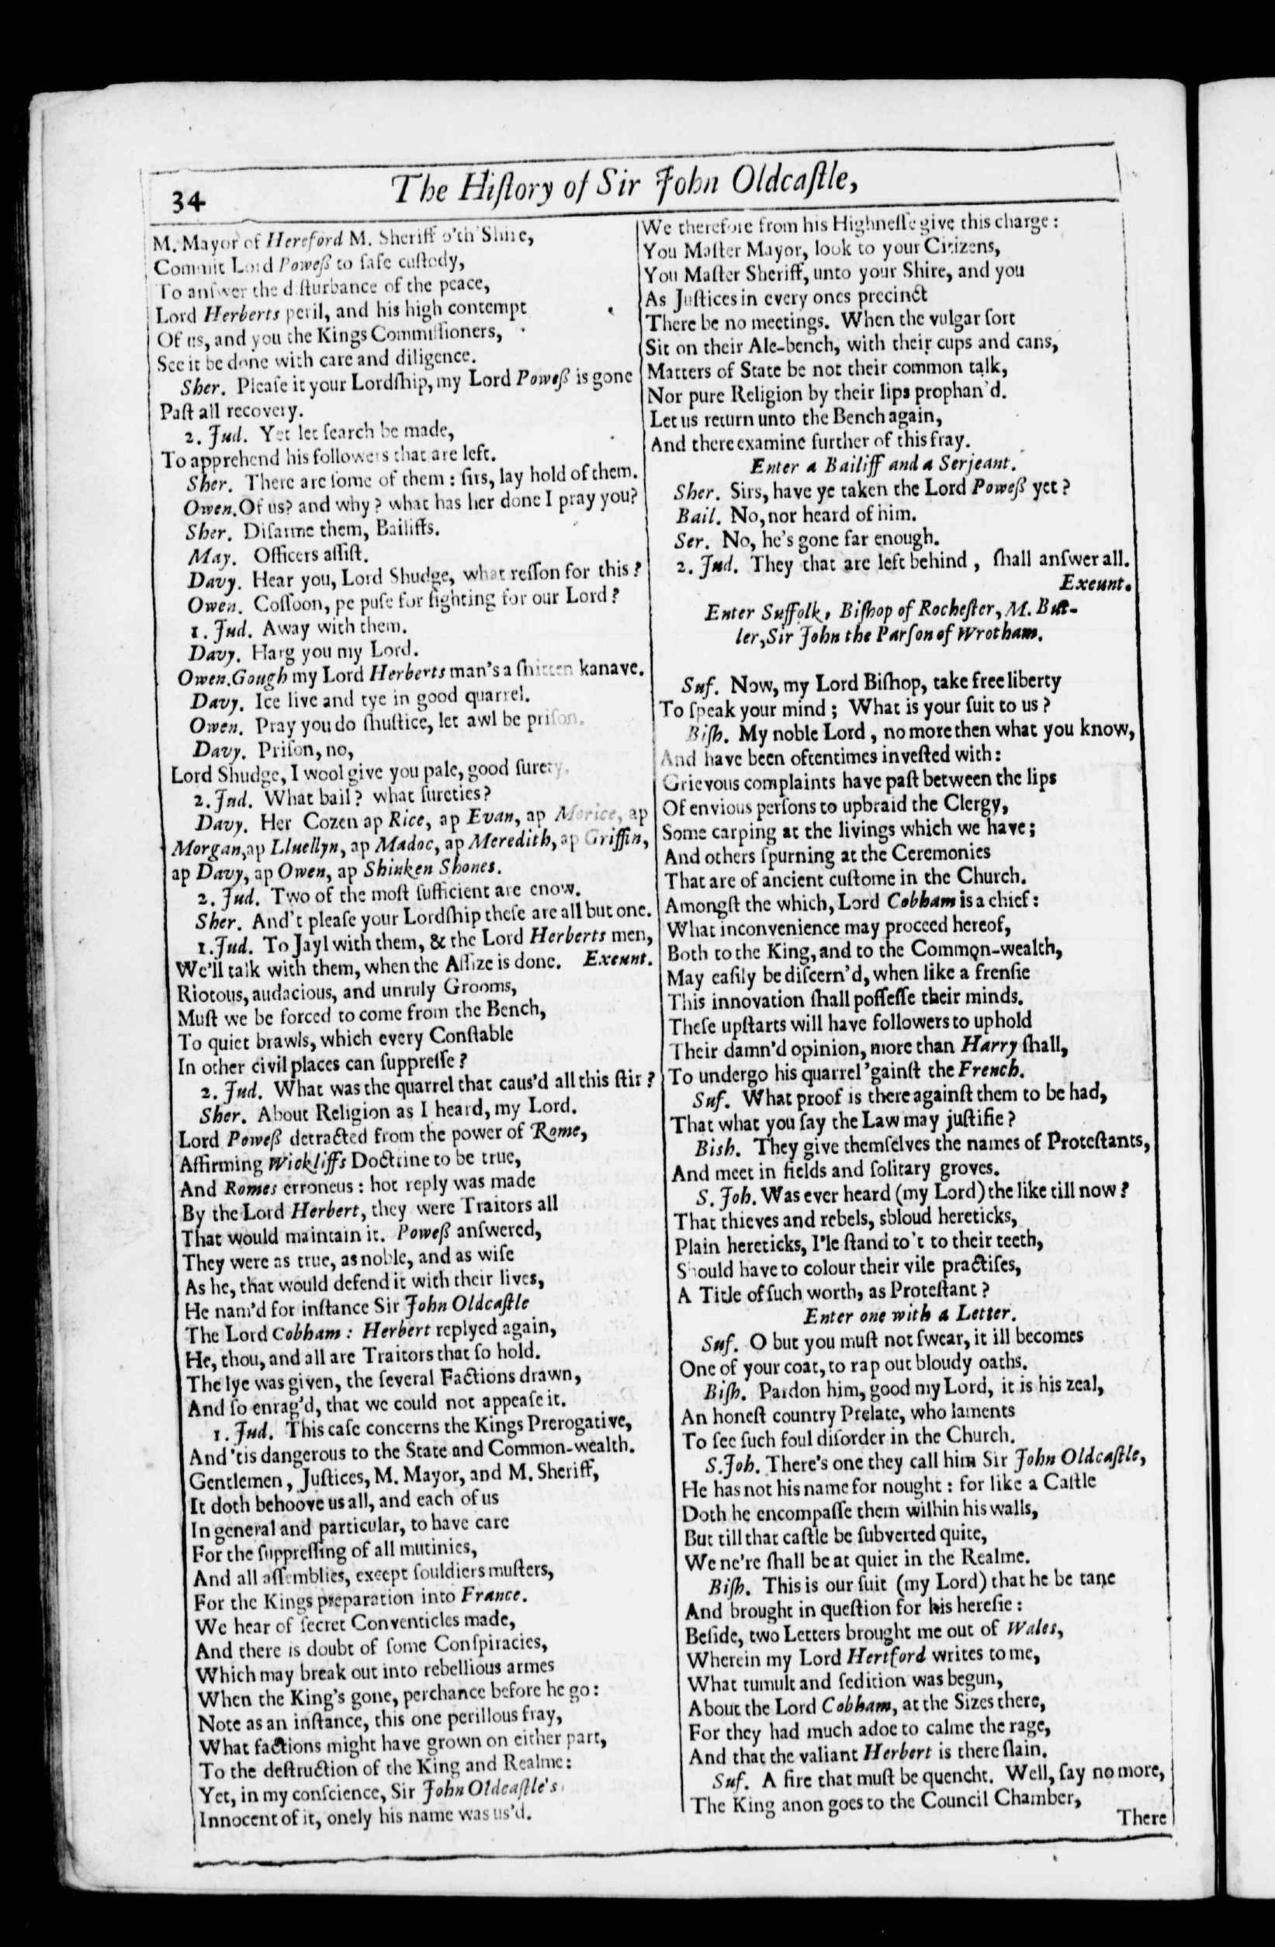 34
The Hiſtory of Sir John Oldcaſtle,
M. Mayor of Hereford M. Sheriff o'th Shire,
Commit Lord Poweß to ſafe cuſtody,
To anſwer the diſturbance of the peace,
Lord Herberts peril, and his high contempt
Of us, and you the Kings Commiſſioners,
See it be done with care and diligence.
Sher. Pleaſe it your Lordſhip, my Lord Poweß is gone
Paſt all recovery.
2. Jud. Yet let ſearch be made,
To apprehend his followers that are left.
Sher. There are ſome of them: ſirs, lay hold of them.
Owen. Of us? and why? what has her done I pray you?
Sher. Diſarme them, Bailiffs.
May. Officers aſſiſt.
Davy. Hear you, Lord Shudge, what reſſon for this?
Owen. Coſſoon, pe puſe for fighting for our Lord?
1. Jud. Away with them.
Davy. Harg you my Lord.
Owen. Gough my Lord Herberts man's a ſhitten kanave.
Davy. Ice live and tye in good quarrel.
Owen. Pray you do ſhuſtice, let awl be priſon.
Davy. Priſon, no,
Lord Shudge, I wool give you pale, good ſurety.
2. Jud. What bail? what ſureties?
Davy. Her Cozen ap Rice, ap Evan, ap Morice, ap
Morgan, ap Lluellyn, ap Madoc, ap Meredith, ap Griffin,
ap Davy, ap Owen, ap Shinken Shones.
2. Jud. Two of the moſt ſufficient are enow.
Sher. And't pleaſe your Lordſhip theſe are all but one.
1. Jud. To Jayl with them, & the Lord Herberts men,
We'll talk with them, when the Aſſize is done. Exeunt.
Riotous, audacious, and unruly Grooms,
Muſt we be forced to come from the Bench,
To quiet brawls, which every Conſtable
In other civil places can ſuppreſſe?
2. Jud. What was the quarrel that caus'd all this ſtir?
Sher. About Religion as I heard, my Lord.
Lord Poweß detracted from the power of Rome,
Affirming Wickliffs Doctrine to be true,
And Romes erroneus: hot reply was made
By the Lord Herbert, they were Traitors all
That would maintain it. Poweß anſwered,
They were as true, as noble, and as wiſe
As he, that would defend it with their lives,
He nam'd for inſtance Sir John Oldcaſtle
The Lord Cobham: Herbert replyed again,
He, thou, and all are Traitors that ſo hold.
The lye was given, the ſeveral Factions drawn,
And ſo enrag'd, that we could not appeaſe it.
1. Jud. This caſe concerns the Kings Prerogative,
And 'tis dangerous to the State and Common-wealth.
Gentlemen, Juſtices, M. Mayor, and M. Sheriff,
It doth behoove us all, and each of us
In general and particular, to have care
For the ſuppreſſing of all mutinies,
And all aſſemblies, except ſouldiers muſters,
For the Kings preparation into France.
We hear of ſecret Conventicles made,
And there is doubt of ſome Conſpiracies,
Which may break out into rebellious armes
When the King's gone, perchance before he go:
Note as an inſtance, this one perillous fray,
What factions might have grown on either part,
To the deſtruction of the King and Realme:
Yet, in my conſcience, Sir John Oldcaſtle's
Innocent of it, onely his name was us'd.
We therefore from his Highneſſe give this charge:
You Maſter Mayor, look to your Citizens,
You Maſter Sheriff, unto your Shire, and you
As Juſtices in every ones precinct
There be no meetings. When the vulgar ſort
Sit on their Ale-bench, with their cups and cans,
Matters of State be not their common talk,
Nor pure Religion by their lips prophan'd.
Let us return unto the Bench again,
And there examine further of this fray.
Enter a Bailiff and a Serjeant.
Sher. Sirs, have ye taken the Lord Poweß yet?
Bail. No, nor heard of him.
Ser. No, he's gone far enough.
2. Jud. They that are left behind, ſhall anſwer all.
Exeunt.
Enter Suffolk, Biſhop of Rocheſter, M. But-
ler, Sir John the Parſon of Wrotham.
Suf. Now, my Lord Biſhop, take free liberty
To ſpeak your mind; What is your ſuit to us?
Biſh. My noble Lord, no more then what you know,
And have been oftentimes inveſted with:
Grievous complaints have paſt between the lips
Of envious perſons to upbraid the Clergy,
Some carping at the livings which we have;
And others ſpurning at the Ceremonies
That are of ancient cuſtome in the Church.
Amongſt the which, Lord Cobham is a chief:
What inconvenience may proceed hereof,
Both to the King, and to the Common-wealth,
May eaſily be diſcern'd, when like a frenſie
This innovation ſhall poſſeſſe their minds.
Theſe upſtarts will have followers to uphold
Their damn'd opinion, more than Harry ſhall,
To undergo his quarrel 'gainſt the French.
Suf. What proof is there againſt them to be had,
That what you ſay the Law may juſtifie?
Bish. They give themſelves the names of Proteſtants,
And meet in fields and ſolitary groves.
S. Joh. Was ever heard (my Lord) the like till now?
That thieves and rebels, sbloud hereticks,
Plain hereticks, I'le ſtand to't to their teeth,
Should have to colour their vile practiſes,
A Title of ſuch worth, as Proteſtant?
Enter one with a Letter.
Suf. O but you muſt not ſwear, it ill becomes
One of your coat, to rap out bloudy oaths.
Biſh. Pardon him, good my Lord, it is his zeal,
An honeſt country Prelate, who laments
To ſee ſuch foul diſorder in the Church.
S. Joh. There's one they call him Sir John Oldcaſtle,
He has not his name for nought: for like a Caſtle
Doth he encompaſſe them wilhin his walls,
But till that caſtle be ſubverted quite,
We ne're ſhall be at quiet in the Realme.
Biſh. This is our ſuit (my Lord) that he be tane
And brought in queſtion for his hereſie:
Beſide, two Letters brought me out of Wales,
Wherein my Lord Hertford writes to me,
What tumult and ſedition was begun,
About the Lord Cobham, at the Sizes there,
For they had much adoe to calme the rage,
And that the valiant Herbert is there ſlain.
Suf. A fire that muſt be quencht. Well, ſay no more,
The King anon goes to the Council Chamber,
There